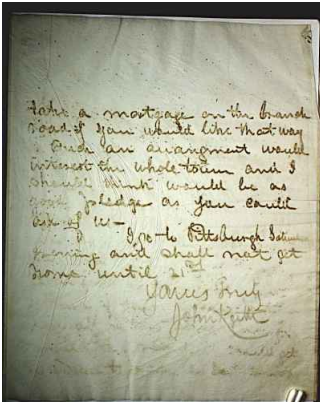 take a mortgage on the branch
road if you would like that way
Such an arrangment would
interest the whole town and I
should think would be as
good pledge as you could
ask of us—
I go to Pittsburgh
morning and shall not get
home until 21st
Yours Truly
John Keith